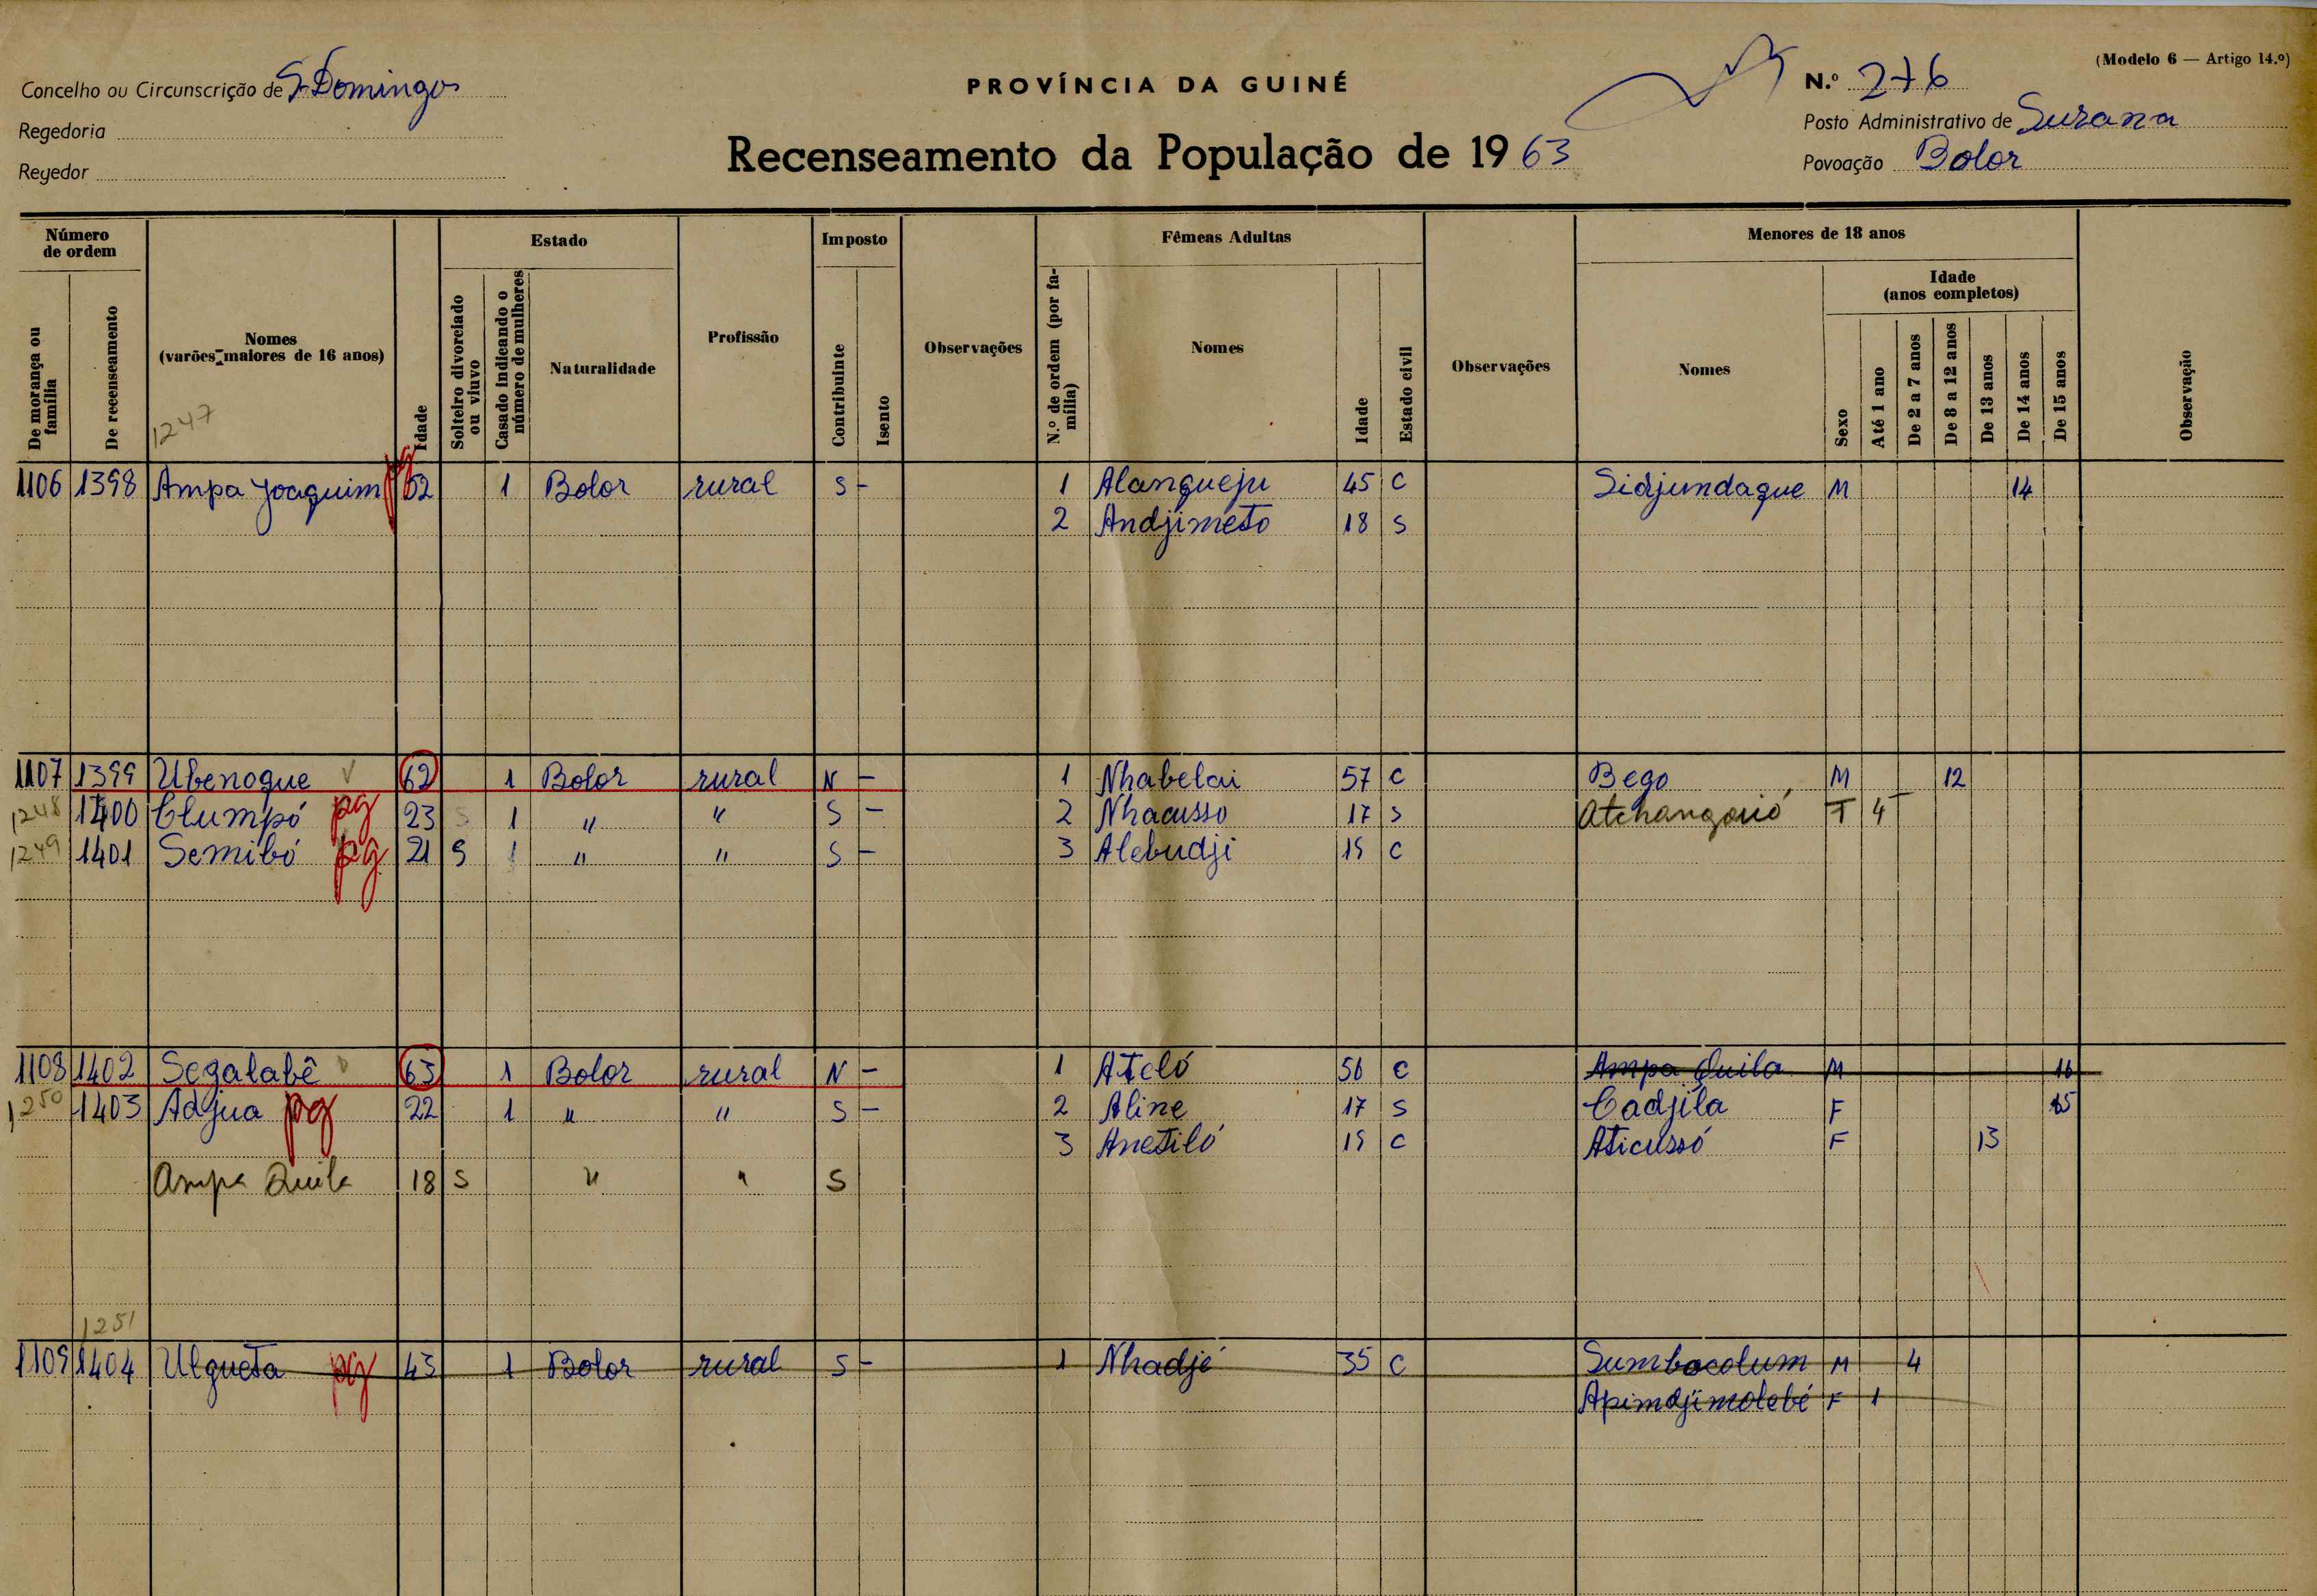 (Modelo 6 — Artigo 14.º)
Concelho ou Circunscrição de S. Domingos
PROVÍNCIA DA GUINÉ
N.º 276
Regedoria
Posto Administrativo de Suzana
Recenseamento da População de 1963
Regedor
Povoação Bolor
Número de ordem
Estado
Imposto
Fêmeas Adultas
Menores de 18 anos
De morança ou família
De recenseamento
Nomes
(varões maiores de 16 anos)
Idade
Solteiro divorciado ou viuvo
Casado indicando o número de mulheres
Naturalidade
Profissão
Contribuinte
Isento
Observações
N.º de ordem (por família)
Nomes
Idade
Estado civil
Observações
Nomes
Sexo
Idade
(anos completos)
Até 1 ano
De 2 a 7 anos
De 8 a 12 anos
De 13 anos
De 14 anos
De 15 anos
Observação
1247
1106 1398 Ampa Joaquim pg 52 1 Bolor rural S - 1 Alangueju 45 C Sidjundaque M 14
2 Andjimeto 18 S
1107 1399 Ubenogue 62 1 Bolor rural N - 1 Nhabelai 57 C Bego M 12
1248 1400 Clumpó pg 23 S 1 " " S - 2 Nhacusso 17 S Atchangouó F 4
1249 1401 Semibó pg 21 S 1 " " S - 3 Alebudji 15 C
1108 1402 Segalabê 63 1 Bolor rural N - 1 Ateló 56 C Ampa Quila M 16
1250 1403 Adjua pg 22 1 " " S - 2 Aline 17 S Cadjila F 15
3 Anetiló 15 C Aticussó F 13
Ampa Quila 18 S " " S
1251
1109 1404 Ulgueta pg 43 1 Bolor rural S - 1 Nhadjé 35 C Sumbocolum M 4
Apimdjimolebé F 1